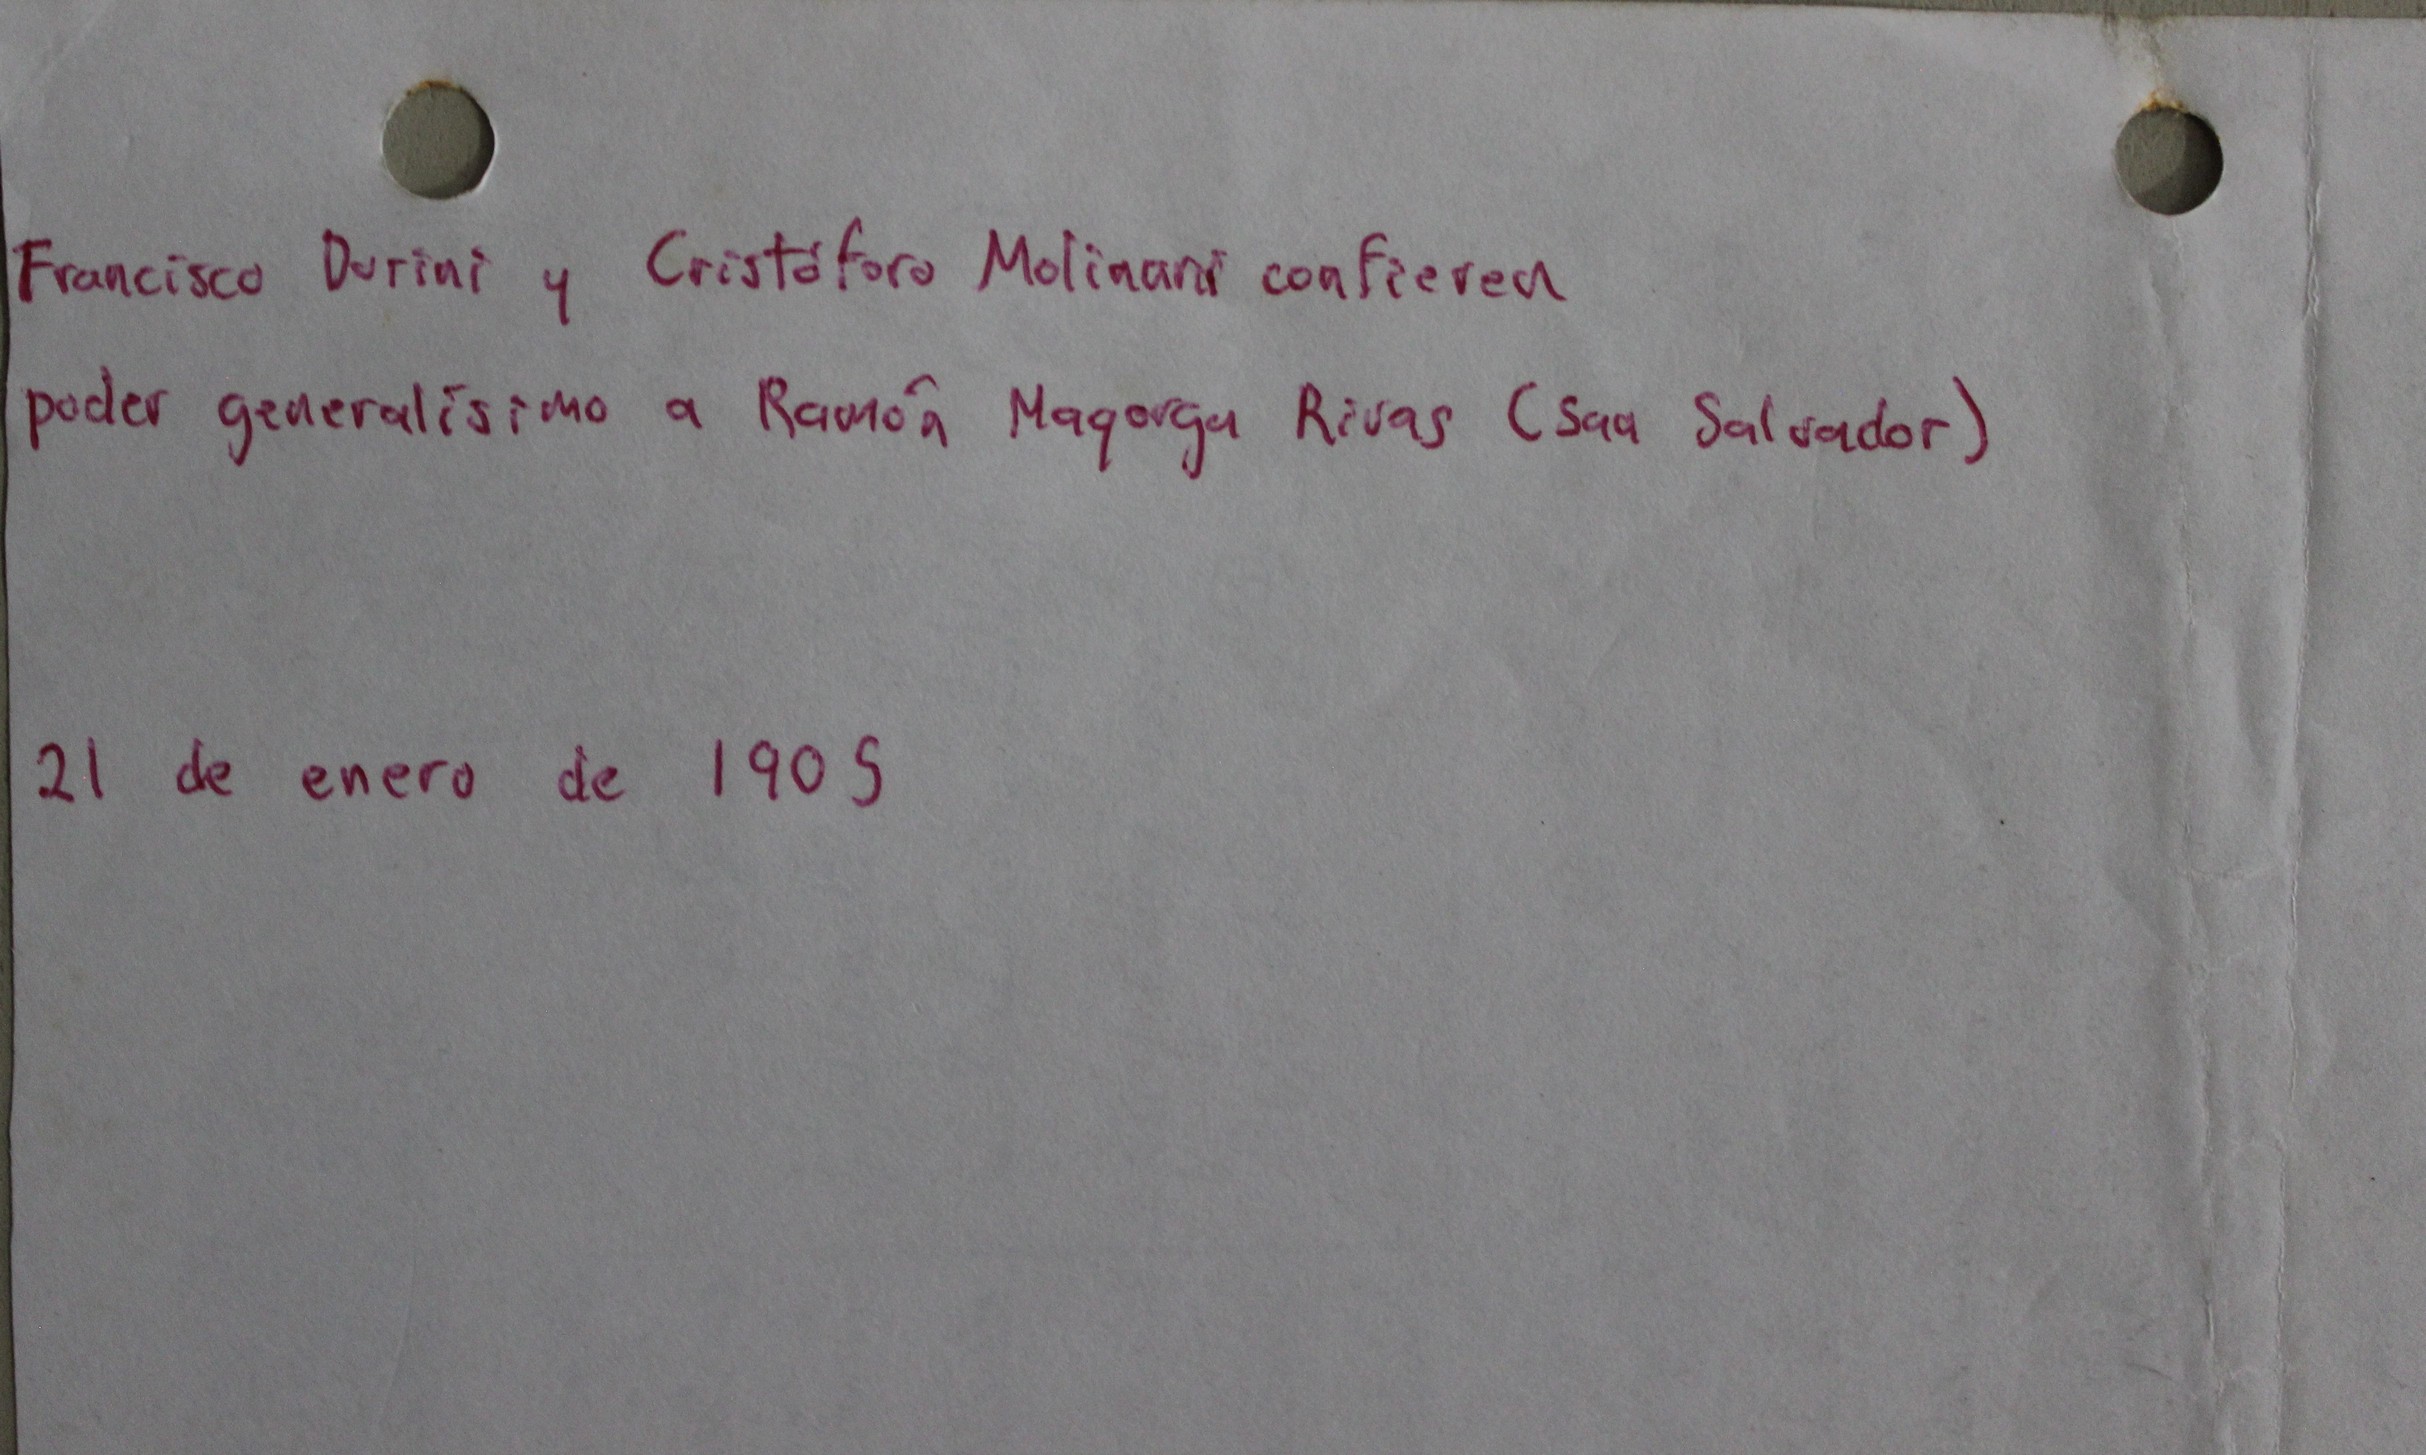 Francisco Durini y Cristóforo Molinari confieren
poder generalísimo a Ramón Mayorga Rivas (San Salvador)
21 de enero de 1905